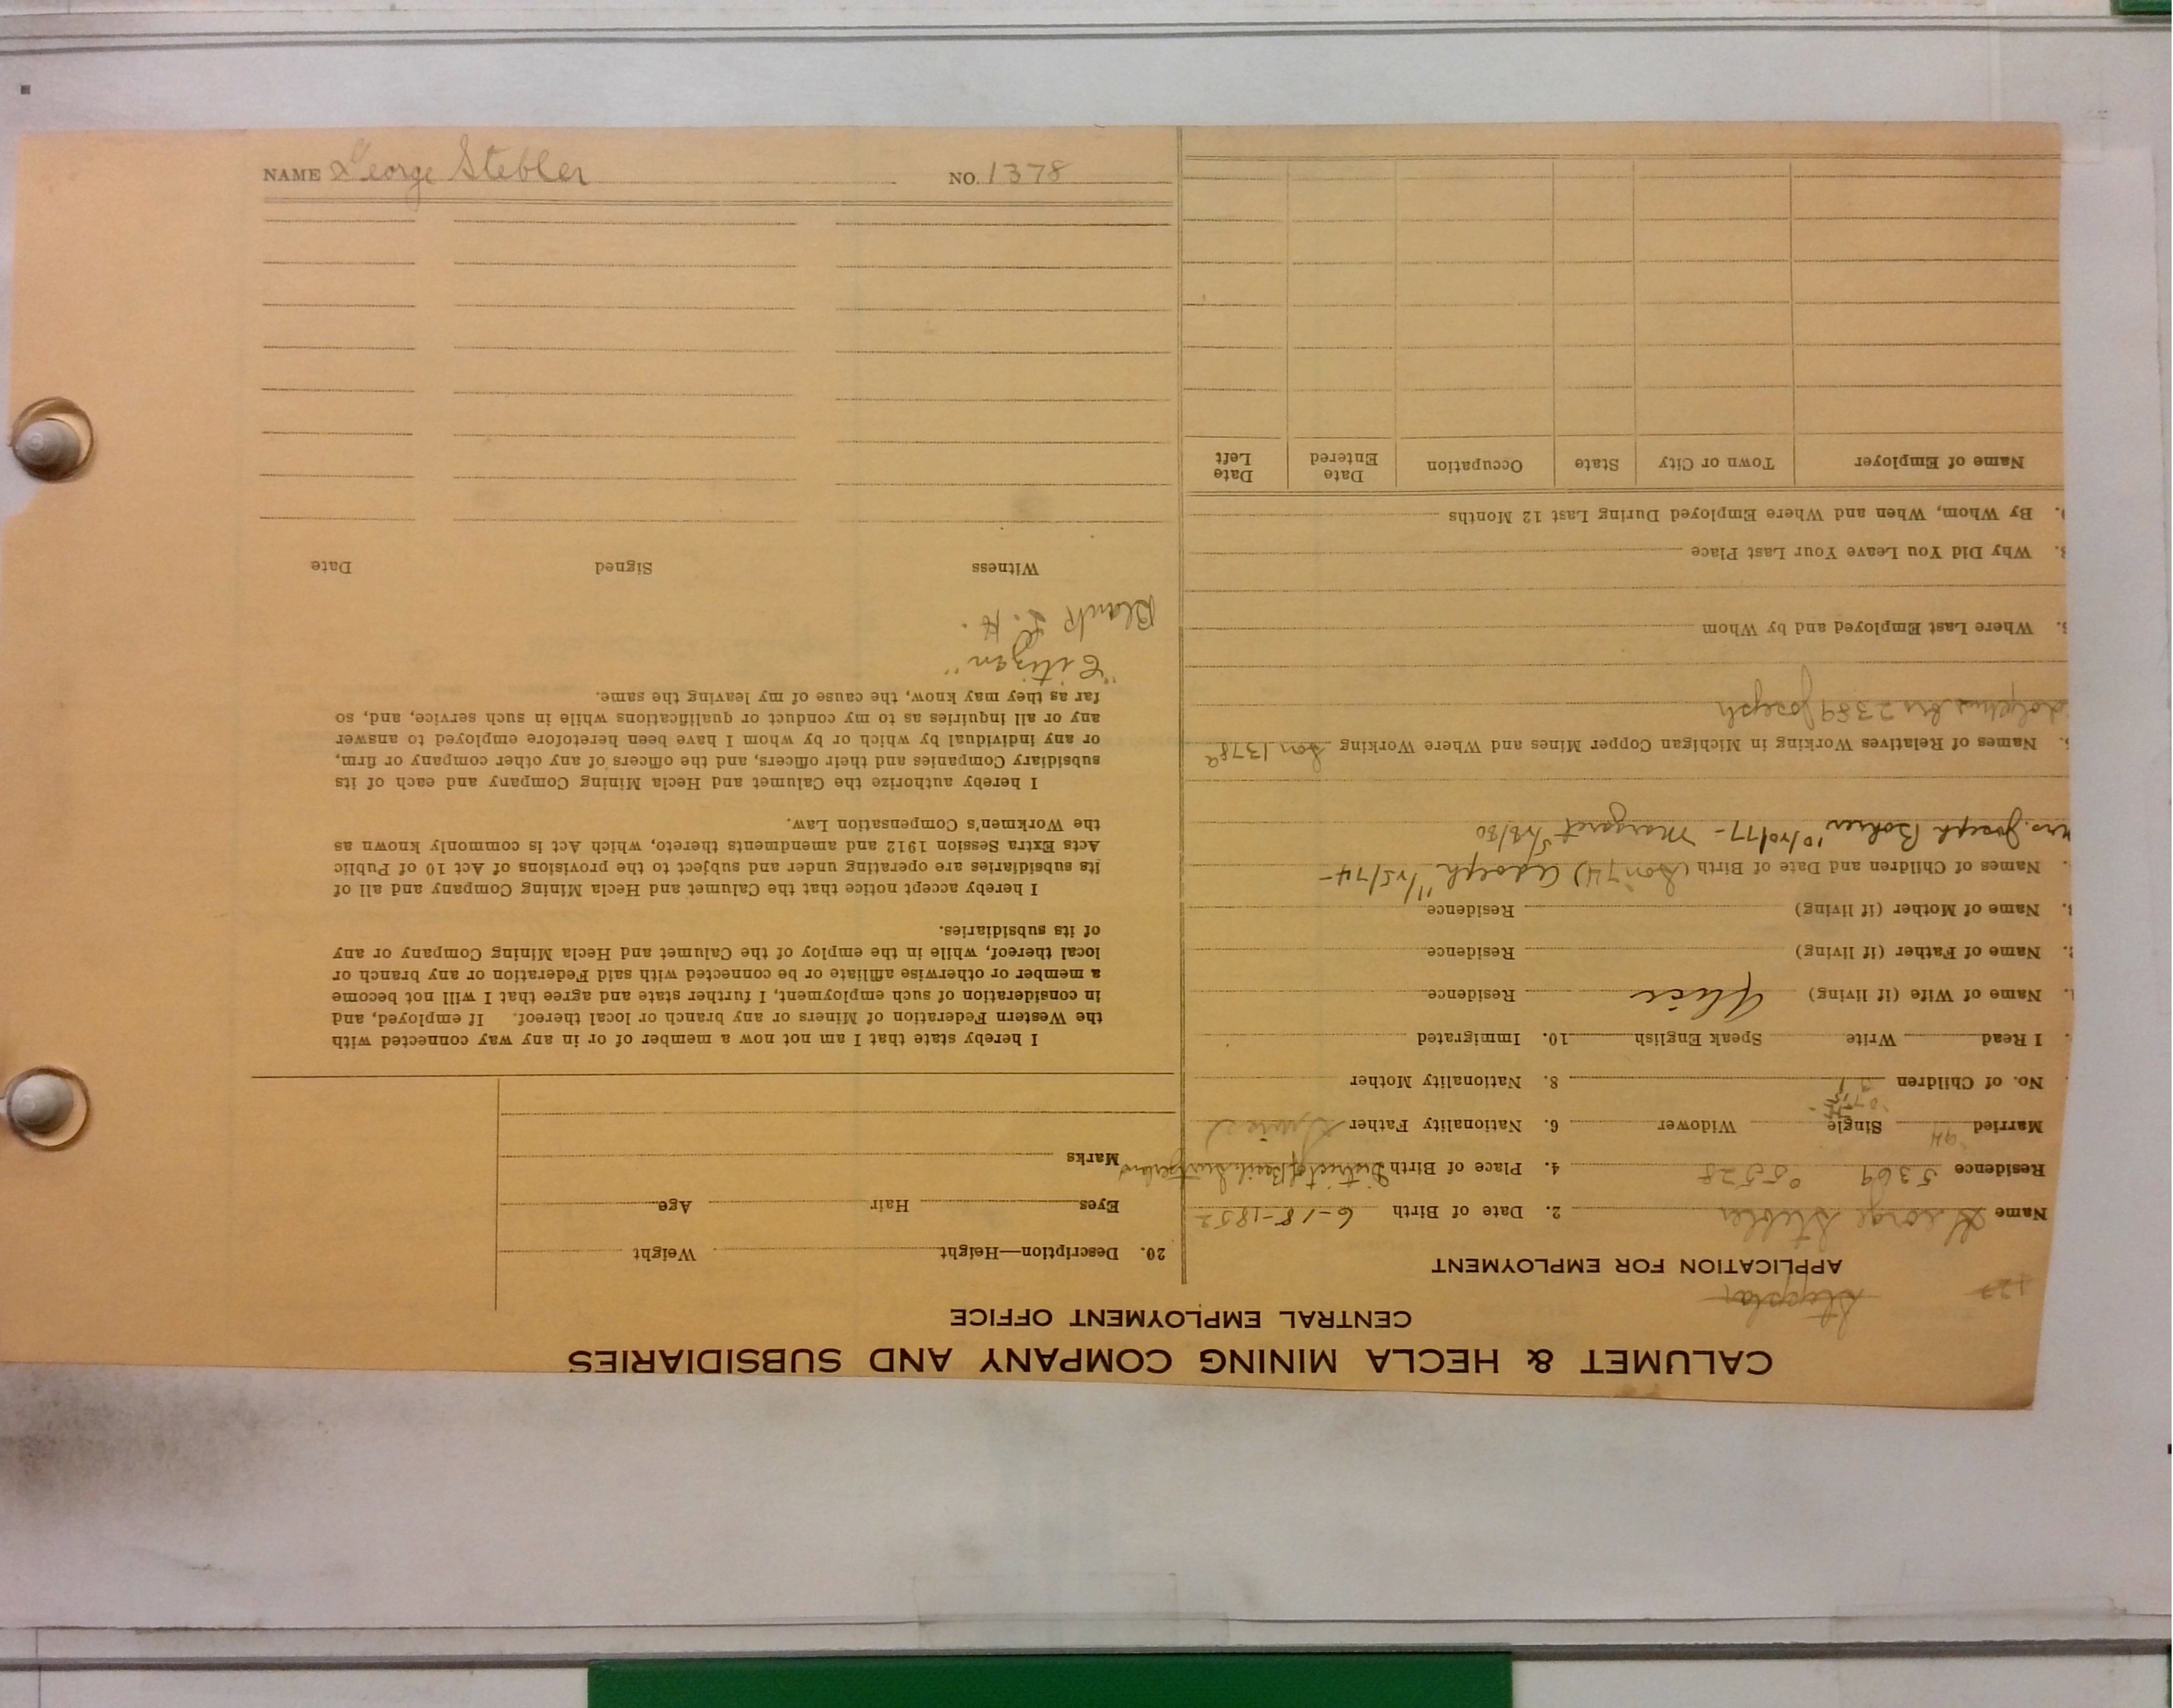 NAME George Stebler NO. 1378
CALUMET & HECLA MINING COMPANY AND SUBSIDIARIES
CENTRAL EMPLOYMENT OFFICE
APPLICATION FOR EMPLOYMENT
Name George Stebler 2. Date of Birth 6-18-1852
Residence 5369 5528 4. Place of Birth District of Switzerland
Married Single Widower 6. Nationality Father Swiss
No. of Children 8. Nationality Mother
I Read Write Speak English 10. Immigrated
Name of Wife (if living) Residence
Name of Father (if living) Residence
Name of Mother (if living) Residence
Names of Children and Date of Birth (Son 74) Adolph 11/25/74-
Mrs. Joseph Bohrer 10/20/77 - Margaret 5/28/80
Names of Relatives Working in Michigan Copper Mines and Where Working Son 1378a
2389 Joseph
Where Last Employed and by Whom
Why Did You Leave Your Last Place
By Whom, When and Where Employed During Last 12 Months
Name of Employer Town or City State Occupation Date Entered Date Left
20. Description—Height Weight
Eyes Hair Age
Marks
I hereby state that I am not now a member of or in any way connected with
the Western Federation of Miners or any branch or local thereof. If employed, and
in consideration of such employment, I further state and agree that I will not become
a member or otherwise affiliate or be connected with said Federation or any branch or
local thereof, while in the employ of the Calumet and Hecla Mining Company or any
of its subsidiaries.
I hereby accept notice that the Calumet and Hecla Mining Company and all of
its subsidiaries are operating under and subject to the provisions of Act 10 of Public
Acts Extra Session 1912 and amendments thereto, which Act is commonly known as
the Workmen's Compensation Law.
I hereby authorize the Calumet and Hecla Mining Company and each of its
subsidiary Companies and their officers, and the officers of any other company or firm,
or any individual by which or by whom I have been heretofore employed to answer
any or all inquiries as to my conduct or qualifications while in such service, and, so
far as they may know, the cause of my leaving the same.
"Citizen"
Blank L. H.
Witness Signed Date